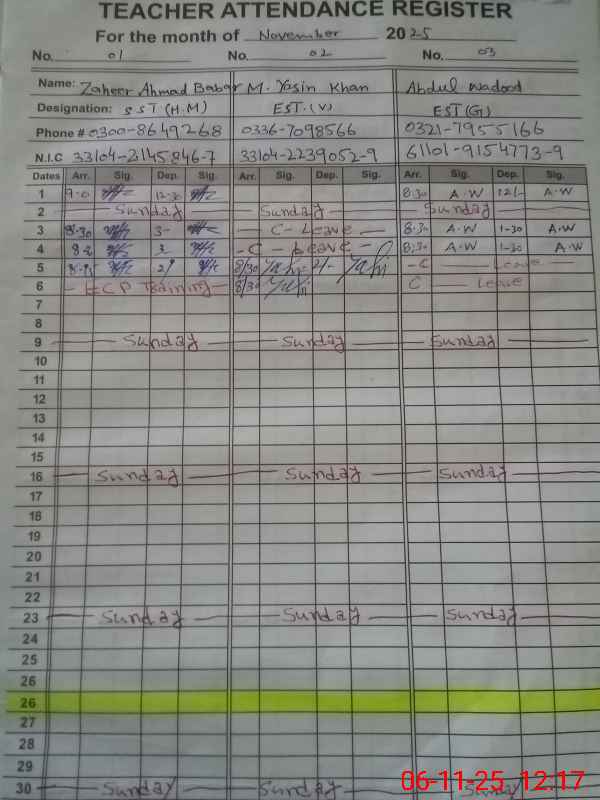 TEACHER ATTENDANCE REGISTER
For the month of November 2025
No. 01 No. 02 No. 03
Name: Zaheer Ahmad Babar M. Yasin Khan Abdul Wadood
Designation: SST (H.M) EST.(V) EST(G)
Phone # 0300-8649268 0336-7098566 0321-7955166
N.I.C 33104-2145846-7 33104-2239052-9 61101-9154773-9
Dates Arr. Sig. Dep. Sig. Arr. Sig. Dep. Sig. Arr. Sig. Dep. Sig.
1 9-0 12-30 8:30 A.W 12/- A.W
2 Sunday Sunday Sunday
3 8-30 3- - C - Leave - 8:30 A.W 1-30 A.W
4 - C - Leave - 8:30 A.W 1-30 A.W
5 2/ 8/30 2/- - C Leave
6 - Training - 8/30 C - Leave
7
8
9 Sunday Sunday Sunday
10
11
12
13
14
15
16 Sunday Sunday Sunday
17
18
19
20
21
22
23 Sunday Sunday Sunday
24
25
26
26
27
28
29
30 Sunday Sunday Sunday
06-11-25 12:17